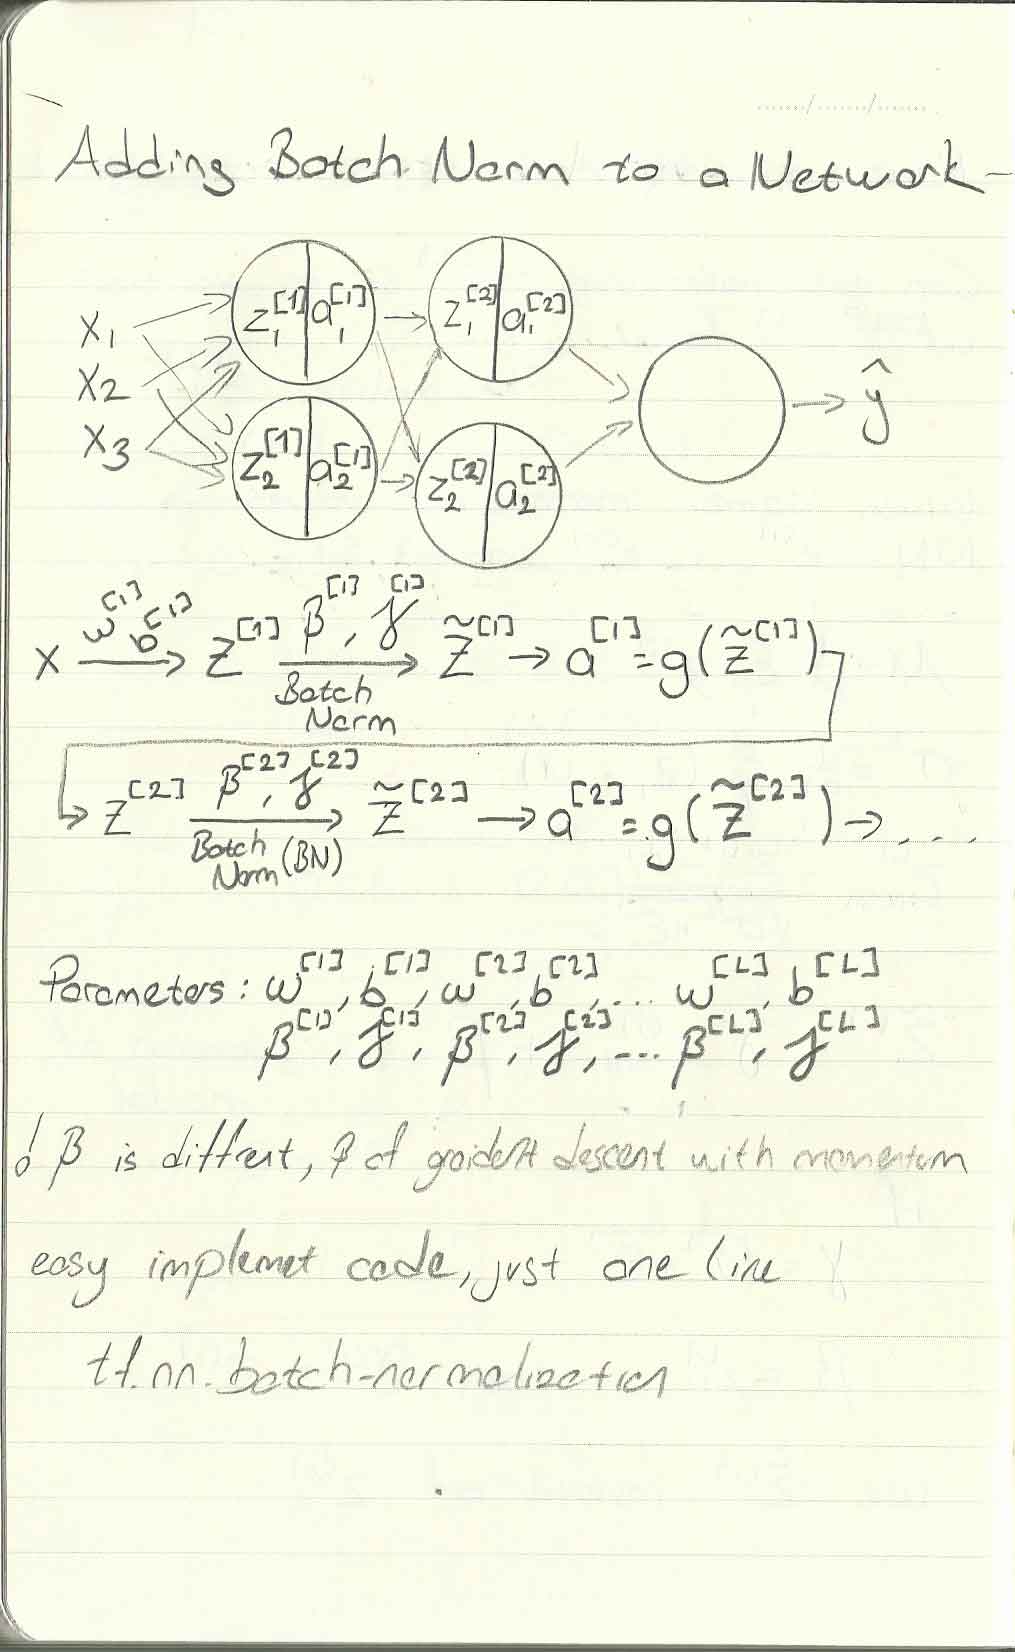 Adding Batch Norm to a Network
x₁
x₂
x₃
z₁^[1] a₁^[1]
z₂^[1] a₂^[1]
z₁^[2] a₁^[2]
z₂^[2] a₂^[2]
ŷ
X ω^[1] b^[1] → Z^[1] β^[1], γ^[1] → Z̃^[1] → a^[1] = g(z̃^[1])
Batch
Norm
→ Z^[2] β^[2], γ^[2] → z̃^[2] → a^[2] = g(z̃^[2]) → ....
Batch
Norm (BN)
Parameters: ω^[1], b^[1], ω^[2], b^[2], ... ω^[L], b^[L]
β^[1], γ^[1], β^[2], γ^[2], ... β^[L], γ^[L]
β is diffrent, β of gradient descent with momentum
easy implemet code, just one line
tf.nn.batch-normalization